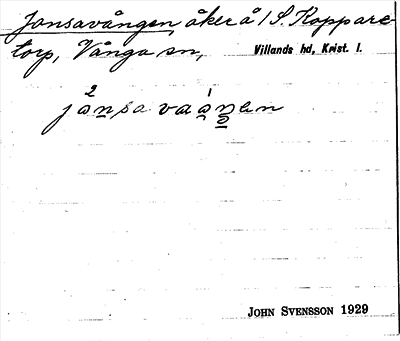 Jonsavången, åker å 1 S. Koppare-
torp, Vånga sn, Villands hd, Krist. l.
JOHN SVENSSON 1929